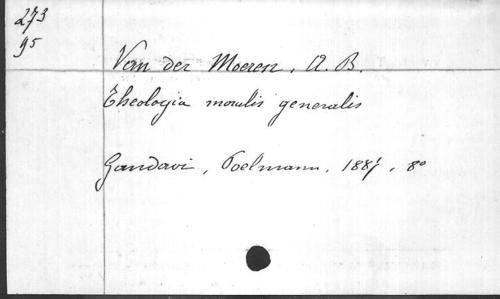 273
95
Van der Moeren, A. B.
Theologia moralis generalis
Gandavi, Poelmann, 1887, 8°